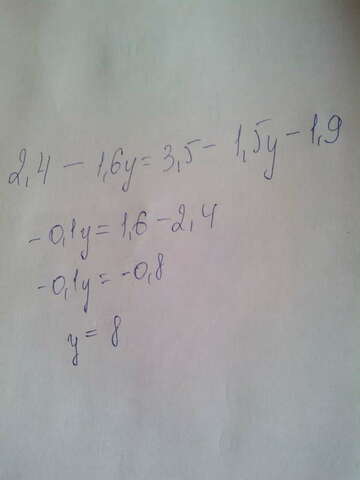 2,4 - 1,6y = 3,5 - 1,5y - 1,9
-0,1y = 1,6 - 2,4
-0,1y = -0,8
y = 8